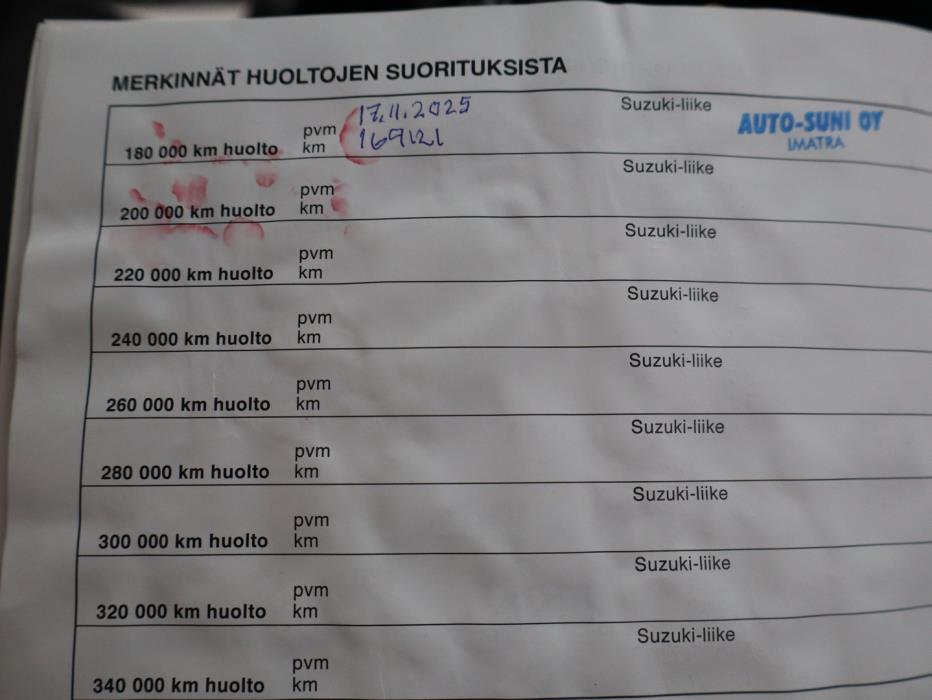 MERKINNÄT HUOLTOJEN SUORITUKSISTA
180 000 km huolto pvm 17.11.2025 Suzuki-liike AUTO-SUNI OY
km 169121 IMATRA
200 000 km huolto pvm Suzuki-liike
km
220 000 km huolto pvm Suzuki-liike
km
240 000 km huolto pvm Suzuki-liike
km
260 000 km huolto pvm Suzuki-liike
km
280 000 km huolto pvm Suzuki-liike
km
300 000 km huolto pvm Suzuki-liike
km
320 000 km huolto pvm Suzuki-liike
km
340 000 km huolto pvm Suzuki-liike
km